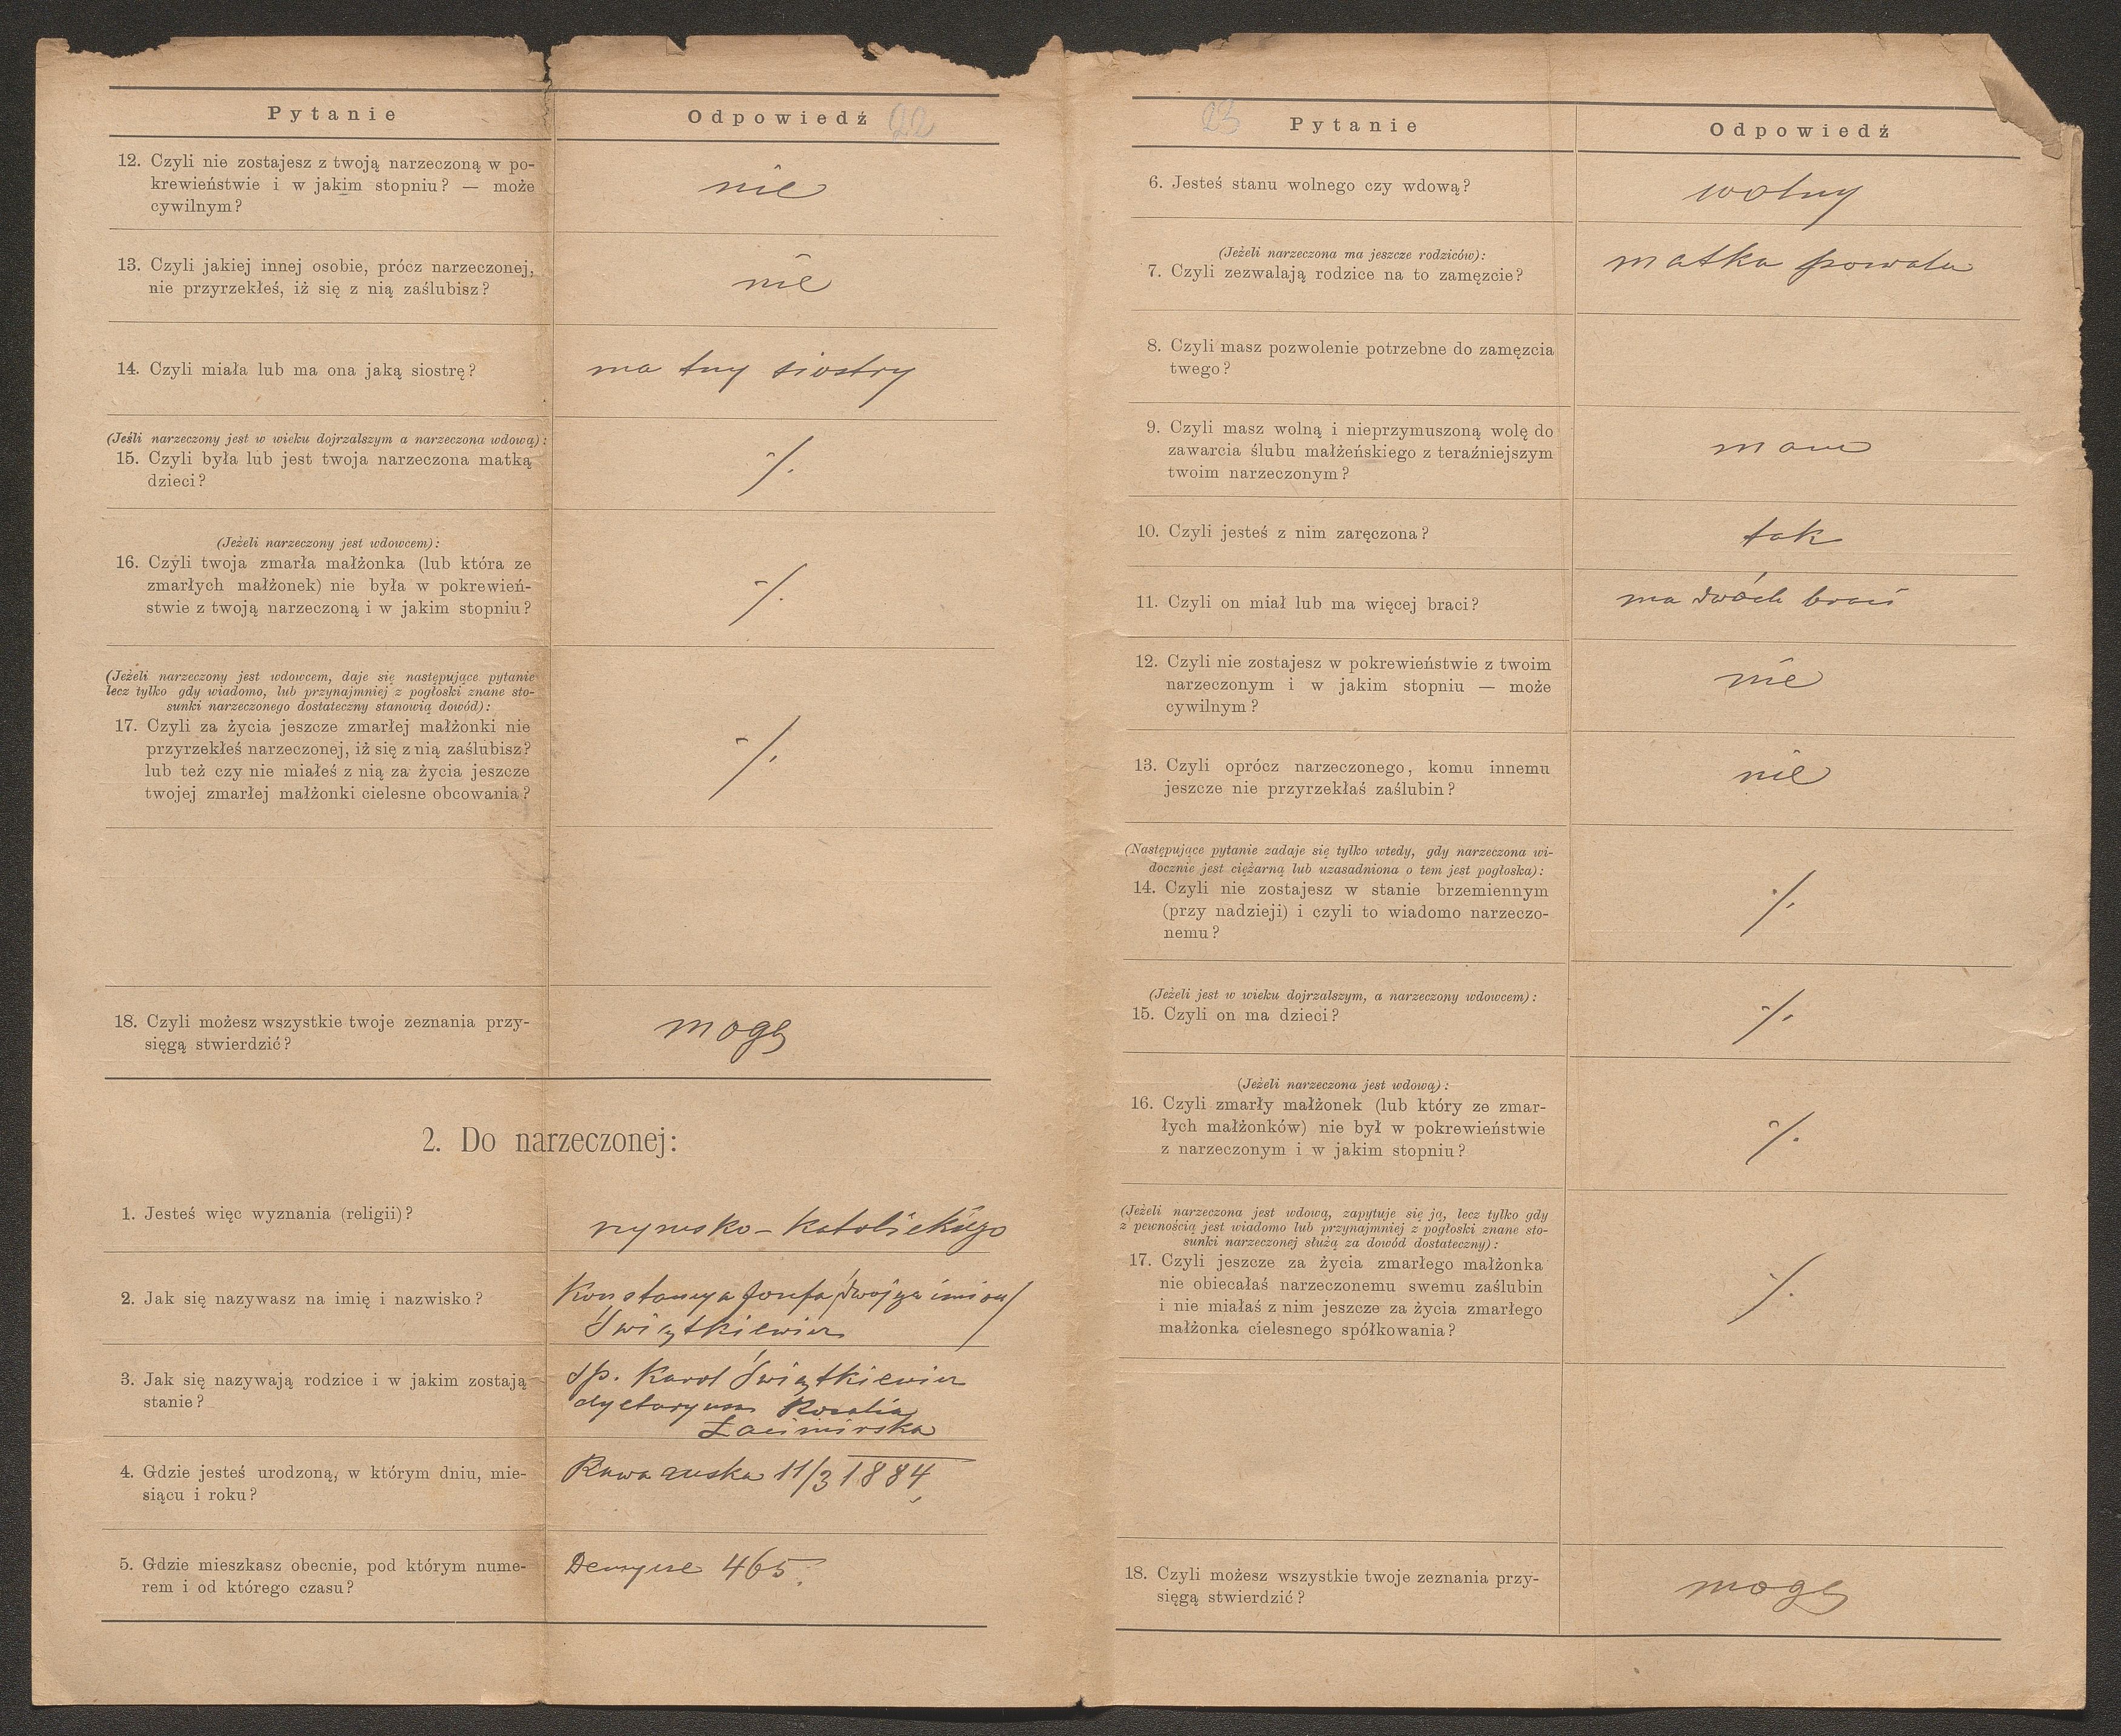 Pytanie
Odpowiedź
22
12. Czyli nie zostajesz z twoją narzeczoną w po-
krewieństwie i w jakim stopniu? — może
cywilnym?
nie
13. Czyli jakiej innej osobie, prócz narzeczonej,
nie przyrzekłeś, iż się z nią zaślubisz?
nie
14. Czyli miała lub ma ona jaką siostrę?
ma trzy siostry
(Jeśli narzeczony jest w wieku dojrzalszym a narzeczona wdową):
15. Czyli była lub jest twoja narzeczona matką
dzieci?
-/.
(Jeżeli narzeczony jest wdowcem):
16. Czyli twoja zmarła małżonka (lub która ze
zmarłych małżonek) nie była w pokrewień-
stwie z twoją narzeczoną i w jakim stopniu?
-/.
(Jeżeli narzeczony jest wdowcem, daje się następujące pytanie
lecz tylko gdy wiadomo, lub przynajmniej z pogłoski znane sto-
sunki narzeczonego dostateczny stanowią dowód):
17. Czyli za życia jeszcze zmarłej małżonki nie
przyrzekłeś narzeczonej, iż się z nią zaślubisz?
lub też czy nie miałeś z nią za życia jeszcze
twojej zmarłej małżonki cielesne obcowania?
-/.
18. Czyli możesz wszystkie twoje zeznania przy-
sięgą stwierdzić?
mogę
2. Do narzeczonej:
1. Jesteś więc wyznania (religii)?
rzymsko-katolickiego
2. Jak się nazywasz na imię i nazwisko?
Konstancya Józefa /dwojga imion/
Świątkiewicz
3. Jak się nazywają rodzice i w jakim zostają
stanie?
śp. Karol Świątkiewicz
dyetaryusz Rozalia
4. Gdzie jesteś urodzoną, w którym dniu, mie-
siącu i roku?
Rawa ruska 11/3 1884
5. Gdzie mieszkasz obecnie, pod którym nume-
rem i od którego czasu?
465.
23
Pytanie
Odpowiedź
6. Jesteś stanu wolnego czy wdową?
wolny
(Jeżeli narzeczona ma jeszcze rodziców):
7. Czyli zezwalają rodzice na to zamęzcie?
matka powala
8. Czyli masz pozwolenie potrzebne do zamęzcia
twego?
9. Czyli masz wolną i nieprzymuszoną wolę do
zawarcia ślubu małżeńskiego z teraźniejszym
twoim narzeczonym?
mam
10. Czyli jesteś z nim zaręczona?
tak
11. Czyli on miał lub ma więcej braci?
ma dwóch braci
12. Czyli nie zostajesz w pokrewieństwie z twoim
narzeczonym i w jakim stopniu — może
cywilnym?
nie
13. Czyli oprócz narzeczonego, komu innemu
jeszcze nie przyrzekłaś zaślubin?
nie
(Następujące pytanie zadaje się tylko wtedy, gdy narzeczona wi-
docznie jest ciężarną lub uzasadniona o tem jest pogłoska):
14. Czyli nie zostajesz w stanie brzemiennym
(przy nadzieji) i czyli to wiadomo narzeczo-
nemu?
-/.
(Jeżeli jest w wieku dojrzalszym, a narzeczony wdowcem):
15. Czyli on ma dzieci?
-/.
(Jeżeli narzeczona jest wdową):
16. Czyli zmarły małżonek (lub który ze zmar-
łych małżonków) nie był w pokrewieństwie
z narzeczonym i w jakim stopniu?
-/.
(Jeżeli narzeczona jest wdową, zapytuje się ją, lecz tylko gdy
z pewnością jest wiadomo lub przynajmniej z pogłoski znane sto-
sunki narzeczonej służą za dowód dostateczny):
17. Czyli jeszcze za życia zmarłego małżonka
nie obiecałaś narzeczonemu swemu zaślubin
i nie miałaś z nim jeszcze za życia zmarłego
małżonka cielesnego spółkowania?
-/.
18. Czyli możesz wszystkie twoje zeznania przy-
sięgą stwierdzić?
mogę